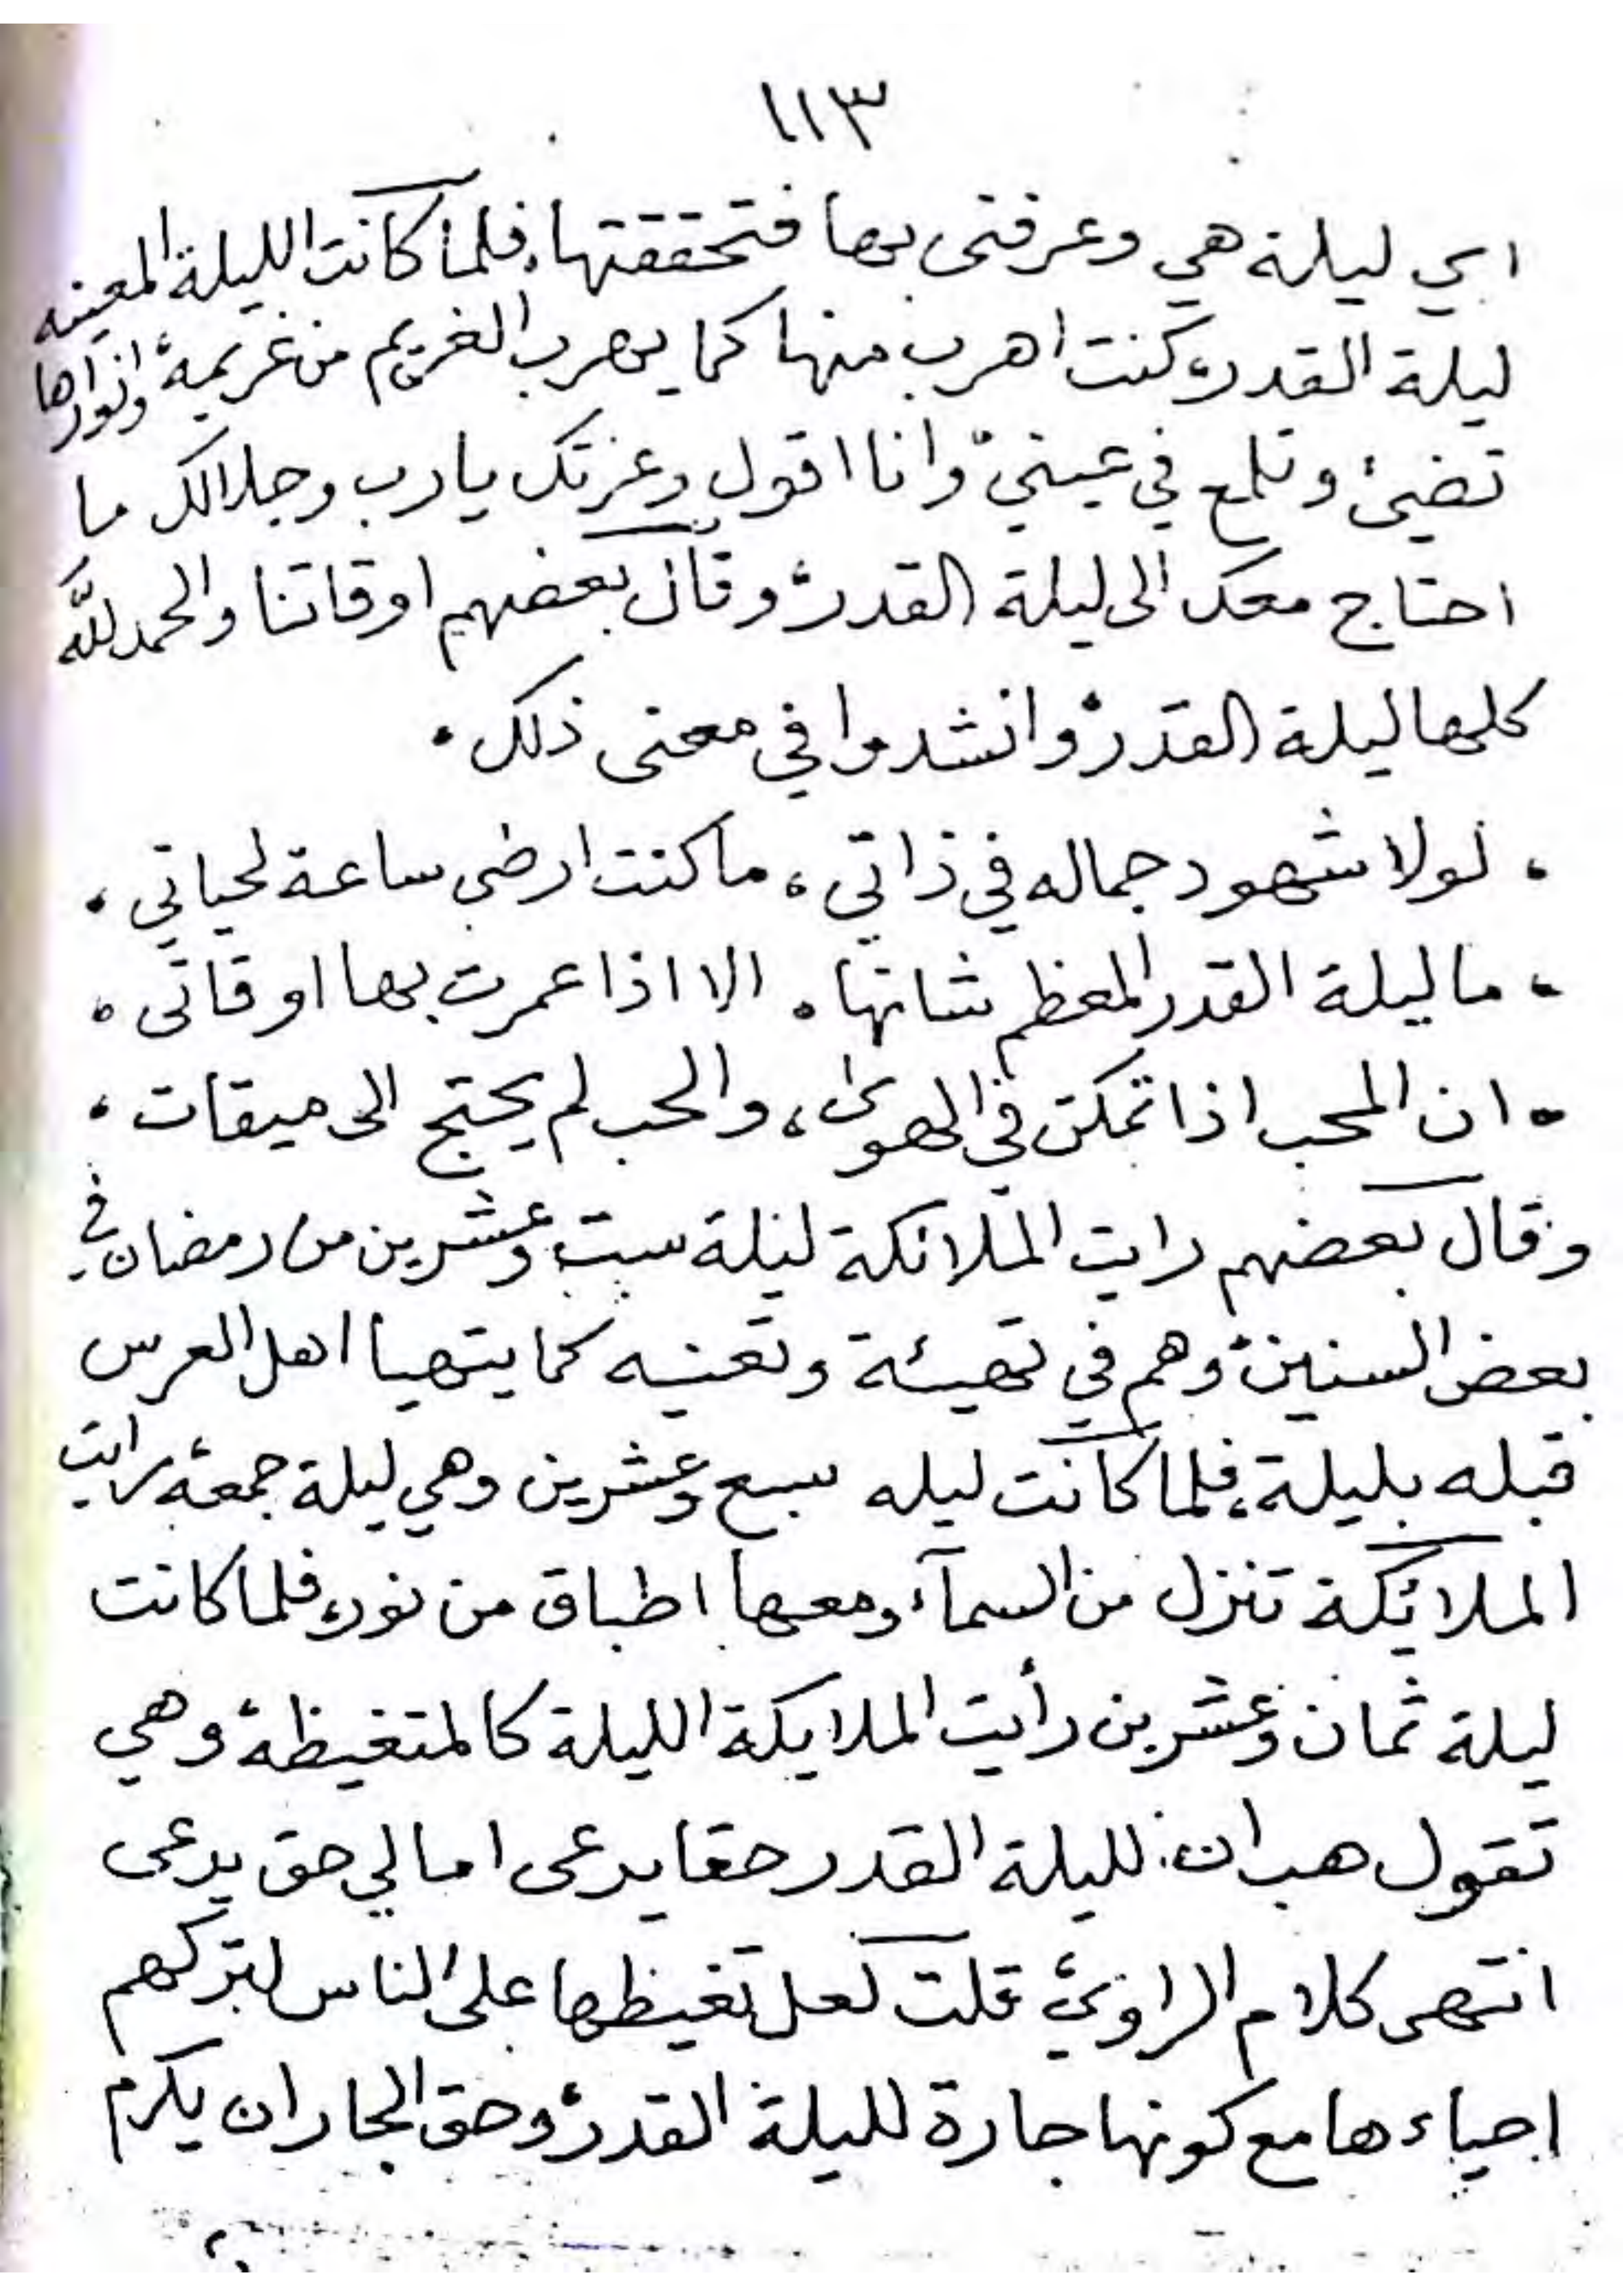 ١١٣
اي ليلة هي وعرفتى بها فتحققتها، فلما كانت الليلة المعينه
ليلة القدر، كنت اهرب منها كما يهرب الغريم من غريمه، وانوارها
تضيئ وتلمع في عيني، وانا اقول وعزتك يا رب وجلالك ما
احتاج معك الى ليلة القدر، وقال بعضهم اوقاتنا والحمد لله
كلها ليلة القدر، وانشدوا في معنى ذلك ٠
، لولا شهود جماله في ذاتي ، ما كنت ارضى ساعة لحياتي ،
، ما ليلة القدر المعظم شانها ٠ الا اذا عمرت بها اوقاتى ٠
٠ ان المحب اذا تمكن في الهوى ، والحب لم يحتج الى ميقات ،
وقال بعضهم رايت الملائكة ليلة ست وعشرين من رمضان في
بعض السنين، وهم في تهيئة وتعنيه كما يتهيا اهل العرس
قبله بليلة، فلما كانت ليله سبع وعشرين وهي ليلة جمعة، رايت
الملائكة تنزل من السمآء ومعها اطباق من نور، فلما كانت
ليلة ثمان وعشرين رأيت الملايكة الليلة كالمتغيظة، وهي
تقول هب ان لليلة القدر حقا يرعى اما لي حق يرعى
انتهى كلام الراوي، قلت لعل تغيظها على الناس لتركهم
احياءها مع كونها جارة لليلة القدر، وحق الجار ان يكرم